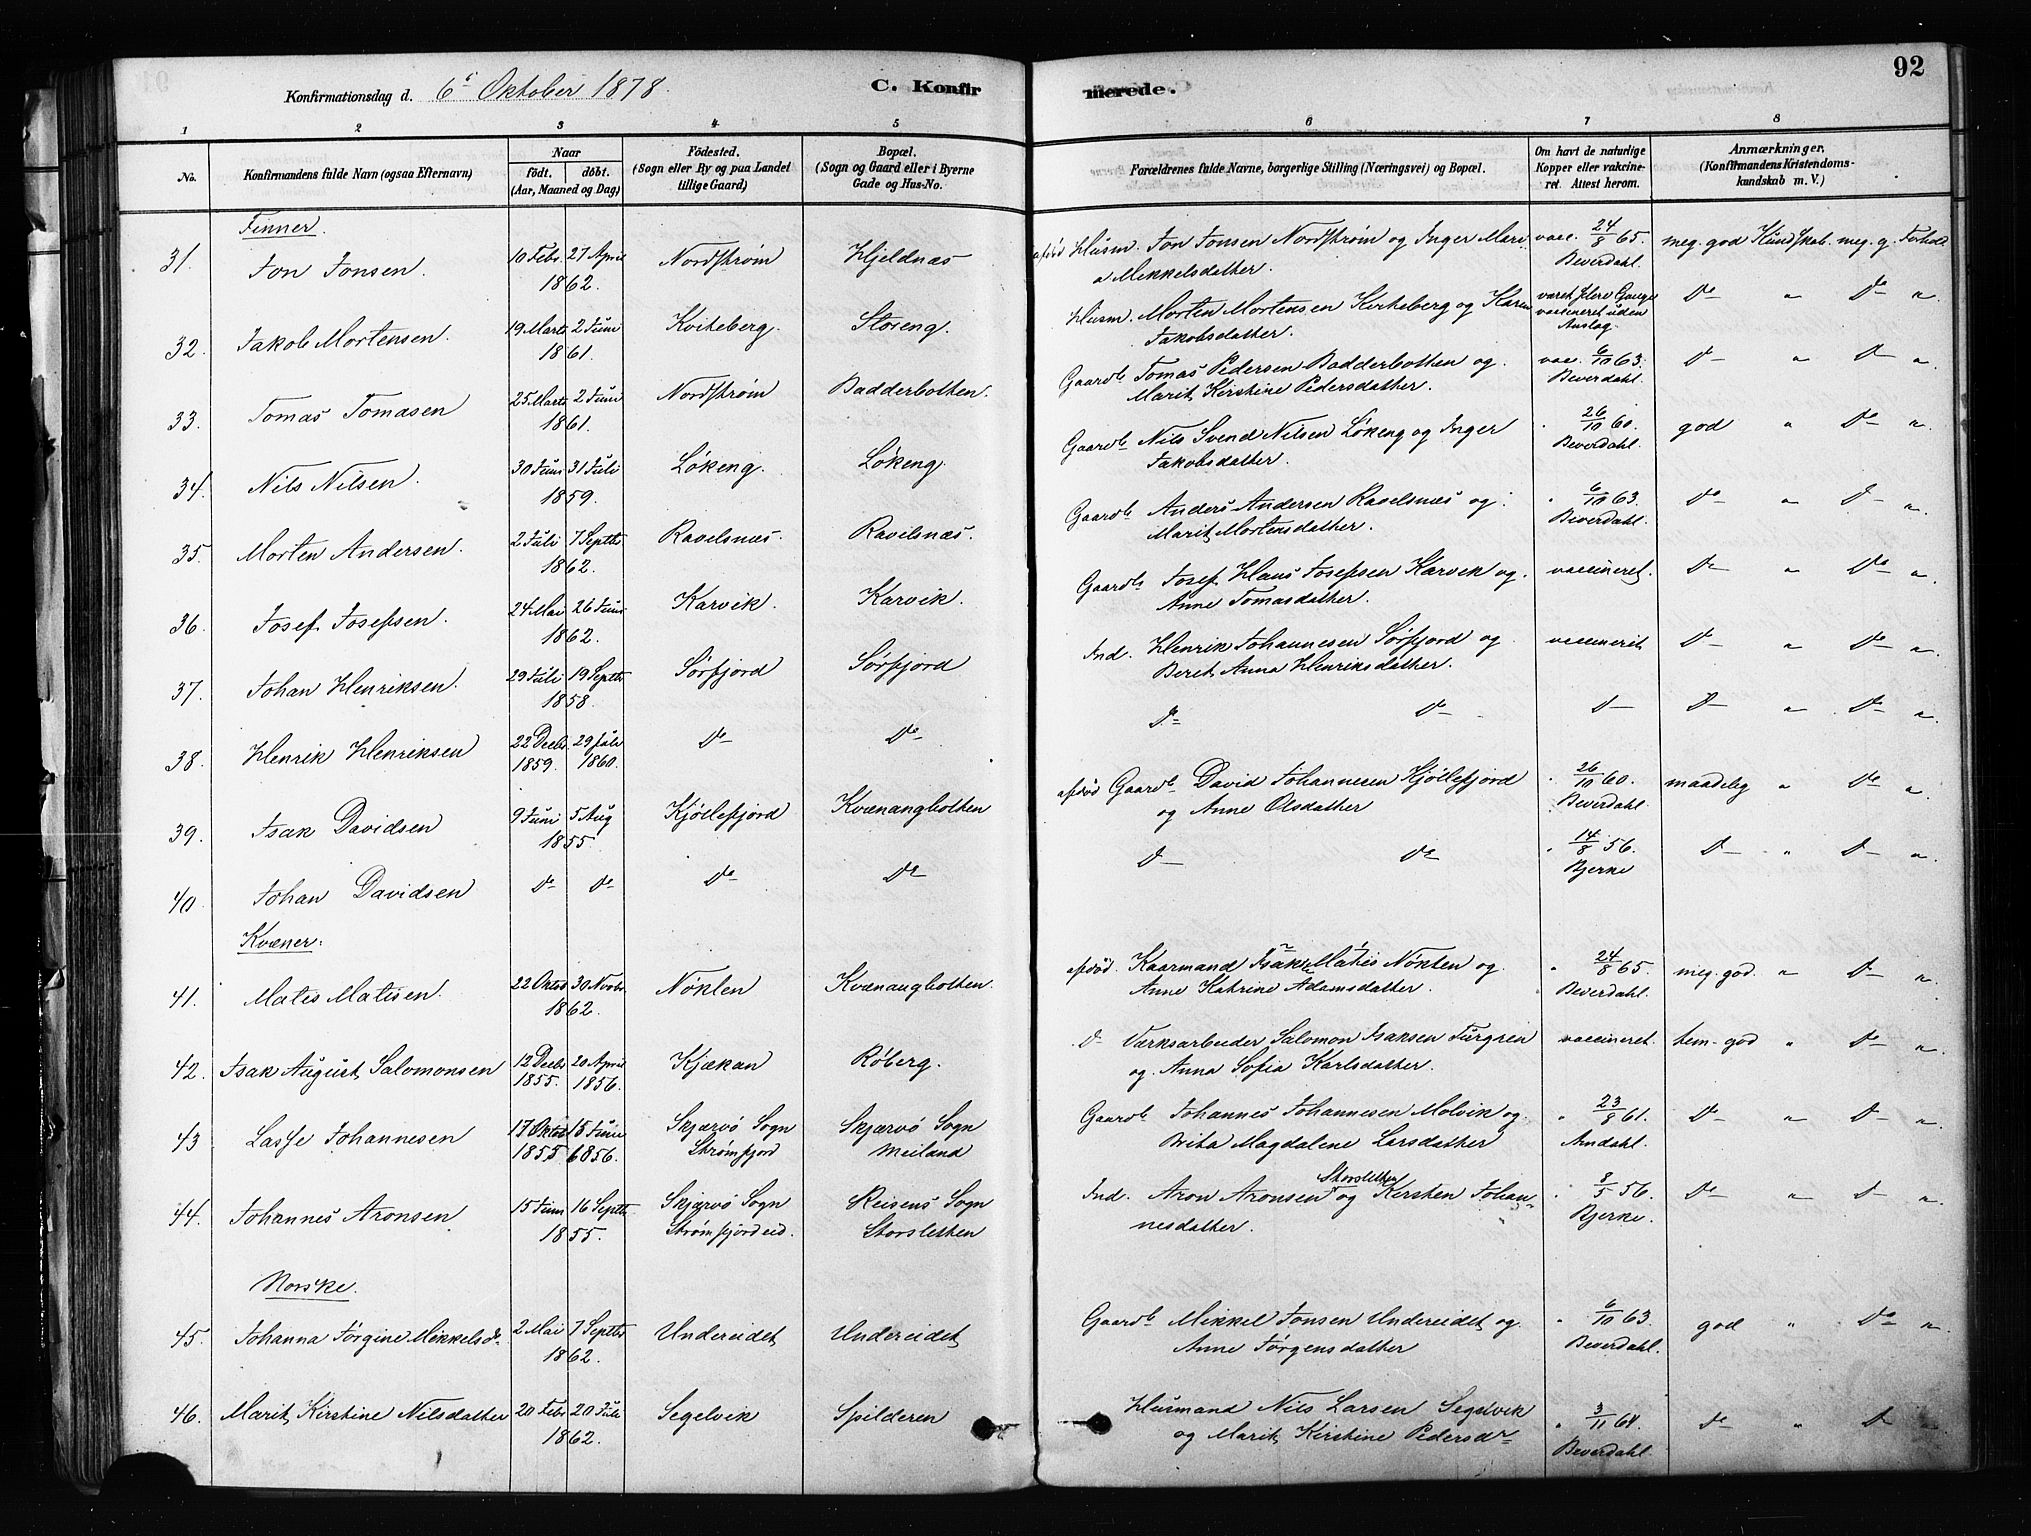 92
Konfirmationsdag d. 6te Oktober 1878.
C. Konfirmerede.
1 2 3 4 5 6 7 8
No.
Konfirmandens fulde Navn (ogsaa Efternavn)
Naar
födt. döbt.
(Aar, Maaned og Dag)
Födested.
(Sogn eller By og paa Landet
tillige Gaard)
Bopæl.
(Sogn og Gaard eller i Byerne
Gade og Hus-No.
Forældrenes fulde Navne, borgerlige Stilling (Næringsvei) og Bopæl.
Om havt de naturlige
Kopper eller vakcine-
ret. Attest herom.
Anmærkninger,
(Konfirmandens Kristendoms-
kundskab m. V.)
Finner.
31. Jon Jonsen. 10 Febr. 27 April 1862. Nordstrøm Hjeldnæs afdöd Husm. Jon Jonsen Nordstrøm og Inger Mari-
a Mikkelsdatter. vacc. 24/8 65. Beverdahl. meg. god Kundskab. meg. g. Forhold
32. Jakob Mortensen. 19 Marts 2 Juni 1861. Kviteberg. Storeng. Husm. Morten Mortensen Kviteberg og Karen
Jakobsdatter. været flere Gange vaccineret uden Anslag. Do " Do "
33. Tomas Tomasen 25 Marts 2 Juni 1861. Nordstrøm Badderbotten. Gaardb. Tomas Pedersen Badderbotten og
Marit Kirstine Pedersdatter. vacc. 6/10 63. Beverdahl. Do " Do "
34. Nils Nilsen. 30 Juni 31 Juli 1859. Lökeng. Lökeng. Gaardb. Nils Svend Nilsen Lökeng og Inger
Jakobsdatter. " 26/10 60. Beverdahl. god " Do "
35. Morten Andersen. 2 Juli 7 Septbr 1862. Ravelsnæs. Ravelsnæs. Gaardb. Anders Andersen Ravelsnæs og
Marit Mortensdatter. " 6/10 63. Beverdahl. Do " Do "
36. Josef Josefsen. 24 Mai 26 Juni 1862. Karvik. Karvik. Gaardb. Josef Hans Josefsen Karvik og
Anne Tomasdatter. vaccineret. Do " Do "
37. Johan Henriksen. 29 Juli 19 Septbr 1858. Sørfjord Sørfjord Ind. Henrik Johannesen Sørfjord og
Beret Anna Henriksdatter. vaccineret Do " Do "
38. Henrik Henriksen 22 Decbr. 1859. 29 Juli 1860. Do Do Do Do Do Do " Do "
39. Isak Davidsen 9 Juni 5 Aug 1855 Kjöllefjord Kvænangbotten afdöd Gaardb. David Johannesen Kjöllefjord
og Anne Olsdatter " 26/10 60. Beverdahl. maadelig " Do "
40. Johan Davidsen Do Do Do Do Do Do " 14/8 56. Bjerke Do " Do "
Kvæner.
41. Matis Matisen. 22 Oktob 30 Novbr. 1862. Nöklen Kvænangbotten. afdöd. Kaarmand Isak Matis Nöklen og
Anne Katrine Adamsdatter. " 24/8 65. Beverdahl. meg. god. " Do "
42. Isak August Salomonsen 12 Decbr 1855. 20 April 1856. Kjækan Röberg. Do Værksarbeider Salomon Isaksen Turgren
og Anna Sofia Karlsdatter. vaccineret. tem. god " Do "
43 Lasse Johannesen 17 Oktob 1855 15 Juni 1856. Skjærvö Sogn Strømfjord Skjærvö Sogn Meiland Gaardb. Johannes Johannesen Molvik og
Brita Magdalene Larsdatter " 23/8 61. Amdahl. Do " Do "
44. Johannes Aronsen 15 Juni 16 Septbr 1855. Skjærvö Sogn Strømfjordeid. Reisens Sogn Storsletten Ind. Aron Aronsen Storsletten og Kirsten Johan-
nesdatter. " 8/5 56. Bjerke. Do " Do "
Norske.
45. Johanna Jørgine Mikkelsdr 2 Mai 7 Septbr 1862. Undereidet Undereidet Gaardb. Mikkel Jonsen Undereidet og
Anne Jørgensdatter " 6/10 63. Beverdahl. god " Do "
46. Marit Kirstine Nilsdatter 20 Febr 20 Juli 1862. Segelvik Spilderen Husmand Nils Larsen Segelvik
og Marit Kirstine Pedersdr " 3/11 64. Beverdahl. Do " Do "